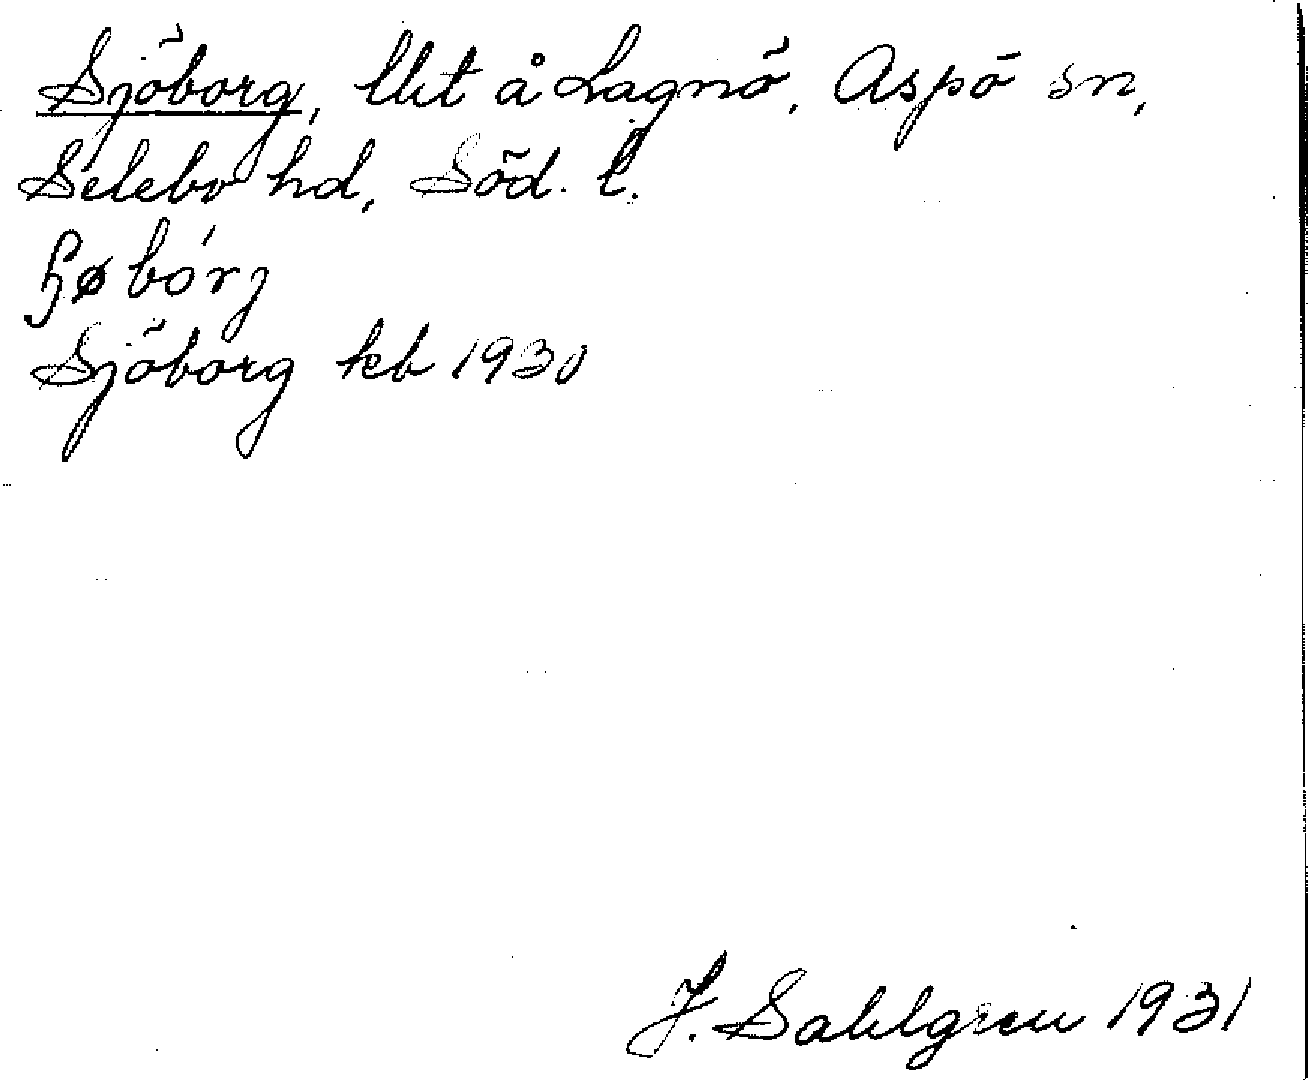 Sjöborg, lht å Lagnö, Aspö sn,
Selebo hd, Söd. l.
ɧøbórj
Sjöborg kb 1930
J. Sahlgren 1931